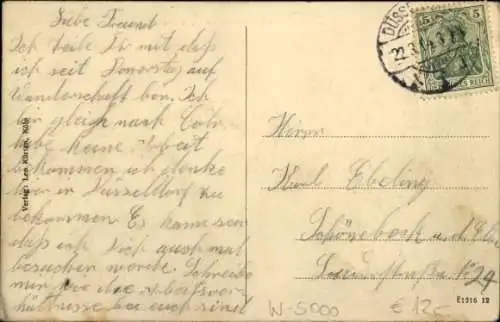 Liebe Freund
Ich teile Dir mit daß
ich seit Donerstag auf
Wanderschaft bin. Ich
bin gleich nach Cöln
habe keine Arbeit
bekommen ich denke
hier in Düsseldorf zu
bekommen Es kann sein
daß ich Dich auch mal
besuchen werde. Schreibe
mir wie die Arbeitsver-
hältnisse bei euch sind
Verlag: Leo Kürten, Köln
DÜSS
22.3.14
5 5
DEUTSCHES REICH
Herrn
Karl Ebeling
Schönebeck a. d. Elbe
29
E1316 12
W-5000
€ 12,-